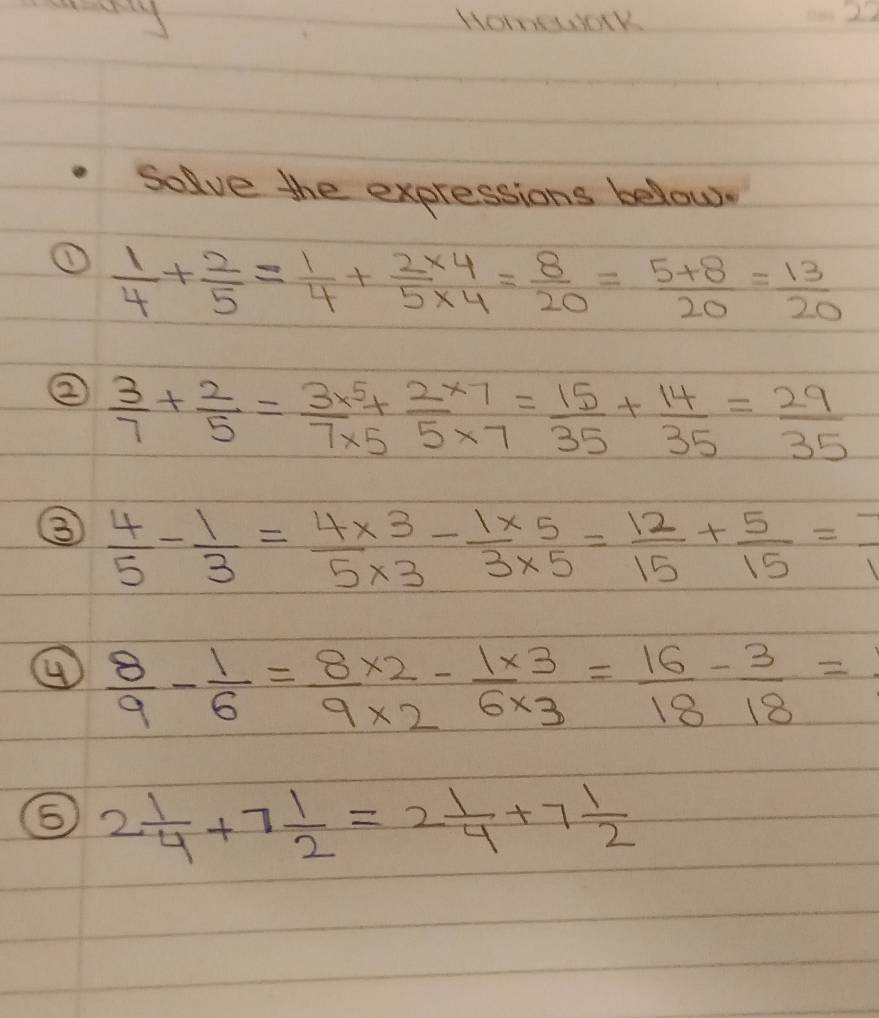 Homework 22
• Solve the expressions below.
① 1/4 + 2/5 = 1/4 + 2×4/5×4 = 8/20 = 5+8/20 = 13/20
② 3/7 + 2/5 = 3×5/7×5 + 2×7/5×7 = 15/35 + 14/35 = 29/35
③ 4/5 - 1/3 = 4×3/5×3 - 1×5/3×5 = 12/15 + 5/15 =
④ 8/9 - 1/6 = 8×2/9×2 - 1×3/6×3 = 16/18 - 3/18 =
⑤ 2 1/4 + 7 1/2 = 2 1/4 + 7 1/2